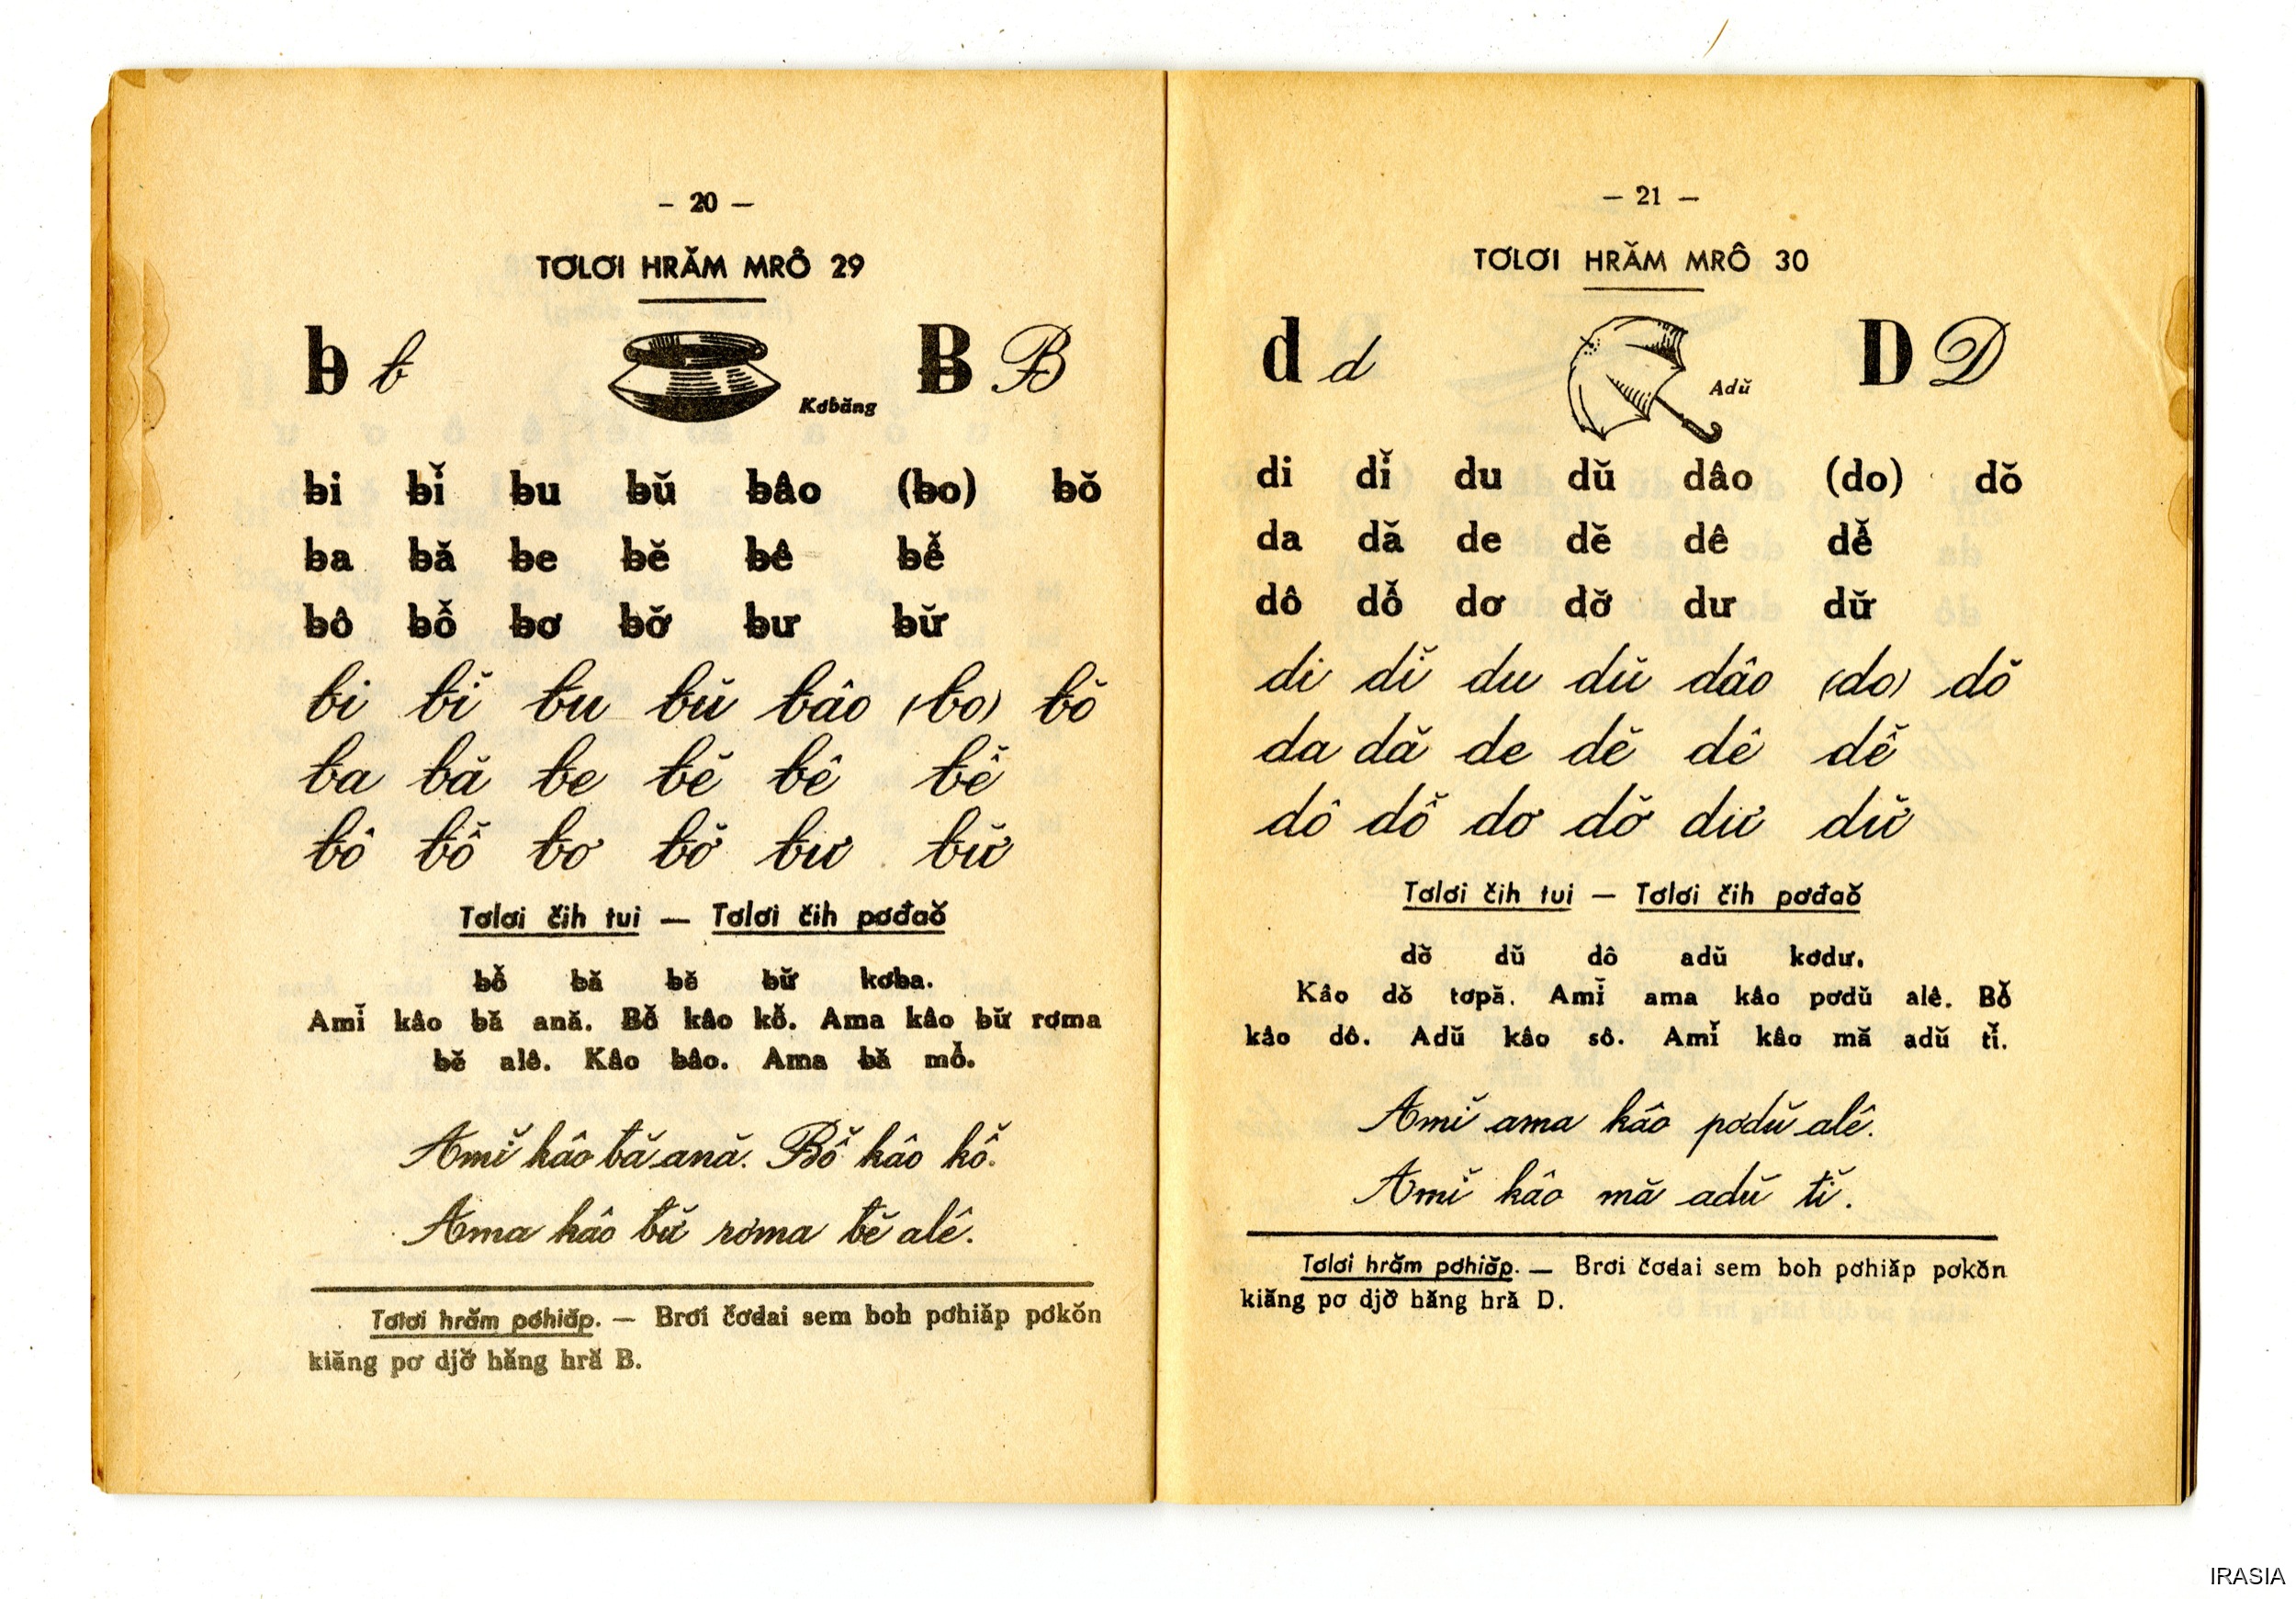 – 20 —
TƠLƠI HRĂM MRÔ 29
ƀ ƀ Kơƀăng Ƀ Ƀ
ƀi ƀĭ ƀu ƀŭ ƀâo (ƀo) ƀŏ
ƀa ƀă ƀe ƀĕ ƀê ƀê̆
ƀô ƀô̆ ƀơ ƀơ̆ ƀư ƀư̆
ƀi ƀĭ ƀu ƀŭ ƀâo (ƀo) ƀŏ
ƀa ƀă ƀe ƀĕ ƀê ƀê̆
ƀô ƀô̆ ƀơ ƀơ̆ ƀư ƀư̆
Tơlơi čih tui — Tơlơi čih pơđaŏ
ƀô̆ ƀă ƀĕ ƀư̆ kơƀa.
Amĭ kâo ƀă ană. Ƀô̆ kâo kô̆. Ama kâo ƀư̆ rơma
ƀĕ alê. Kâo ƀâo. Ama ƀă mô̆.
Amĭ kâo ƀă ană. Ƀô̆ kâo kô̆.
Ama kâo ƀư̆ rơma ƀĕ alê.
Tơlơi hrăm pơhiăp. — Brơi čơđai sem boh pơhiăp pơkŏn
kiăng pơ djơ̆ hăng hră Ƀ.
— 21 —
TƠLƠI HRĂM MRÔ 30
d d Adŭ D D
di dĭ du dŭ dâo (do) dŏ
da dă de dĕ dê dê̆
dô dô̆ dơ dơ̆ dư dư̆
di dĭ du dŭ dâo (do) dŏ
da dă de dĕ dê dê̆
dô dô̆ dơ dơ̆ dư dư̆
Tơlơi čih tui — Tơlơi čih pơđaŏ
dŏ dŭ dô adŭ kơdư.
Kâo dŏ tơpă. Amĭ ama kâo pơdŭ alê. Bô̆
kâo dô. Adŭ kâo sô. Amĭ kâo mă adŭ tĭ.
Amĭ ama kâo pơdŭ alê.
Amĭ kâo mă adŭ tĭ.
Tơlơi hrăm pơhiăp. — Brơi čơđai sem boh pơhiăp pơkŏn
kiăng pơ djơ̆ hăng hră D.
IRASIA